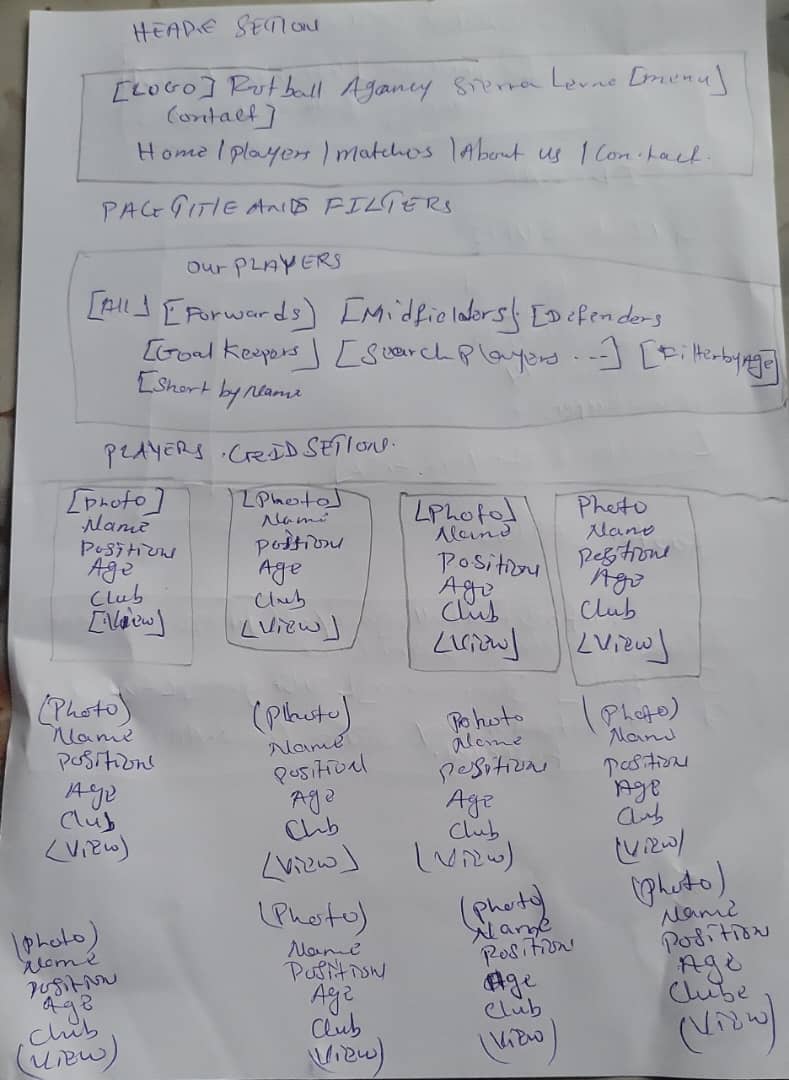 HEADE SETION
[LOGO] Football Agancy Sierra Leone [menu]
Contact]
Home / players / matches / About us / Contack.
PAGE TITLE AND FILTERS
Our PLAYERS
[All] [Forwards) [Midfielders] [Defenders
[Goal Keepers] [Search Players ...] [Filter by Age]
[Short by Name
PLAYERS GRID SETION.
[photo]
Name
Position
Age
Club
[View]
[Photo]
Name
Position
Age
Club
[View]
[Photo]
Name
Position
Age
Club
[View]
Photo
Name
Position
Age
Club
[View]
(Photo)
Name
Position
Age
Club
(View)
(Photo)
Name
Position
Age
Club
[View]
Pohoto
Name
Position
Age
Club
(View)
(Photo)
Name
Position
Age
Club
(View)
(photo)
Name
Position
Age
Club
(View)
(Photo)
Name
Position
Age
Club
(View)
(photo)
Name
Position
Age
Club
(View)
(photo)
Name
Position
Age
Clube
(View)